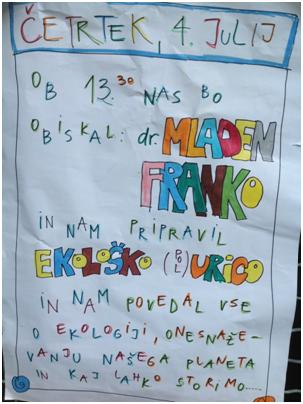 ČETRTEK, 4. JULIJ
OB 13.30 NAS BO
OBISKAL: dr. MLADEN
FRANKO
IN NAM PRIPRAVIL
EKOLOŠKO (POL)URICO
IN NAM POVEDAL VSE
O EKOLOGIJI, ONESNAŽE-
VANJU NAŠEGA PLANETA
IN KAJ LAHKO STORIMO.....